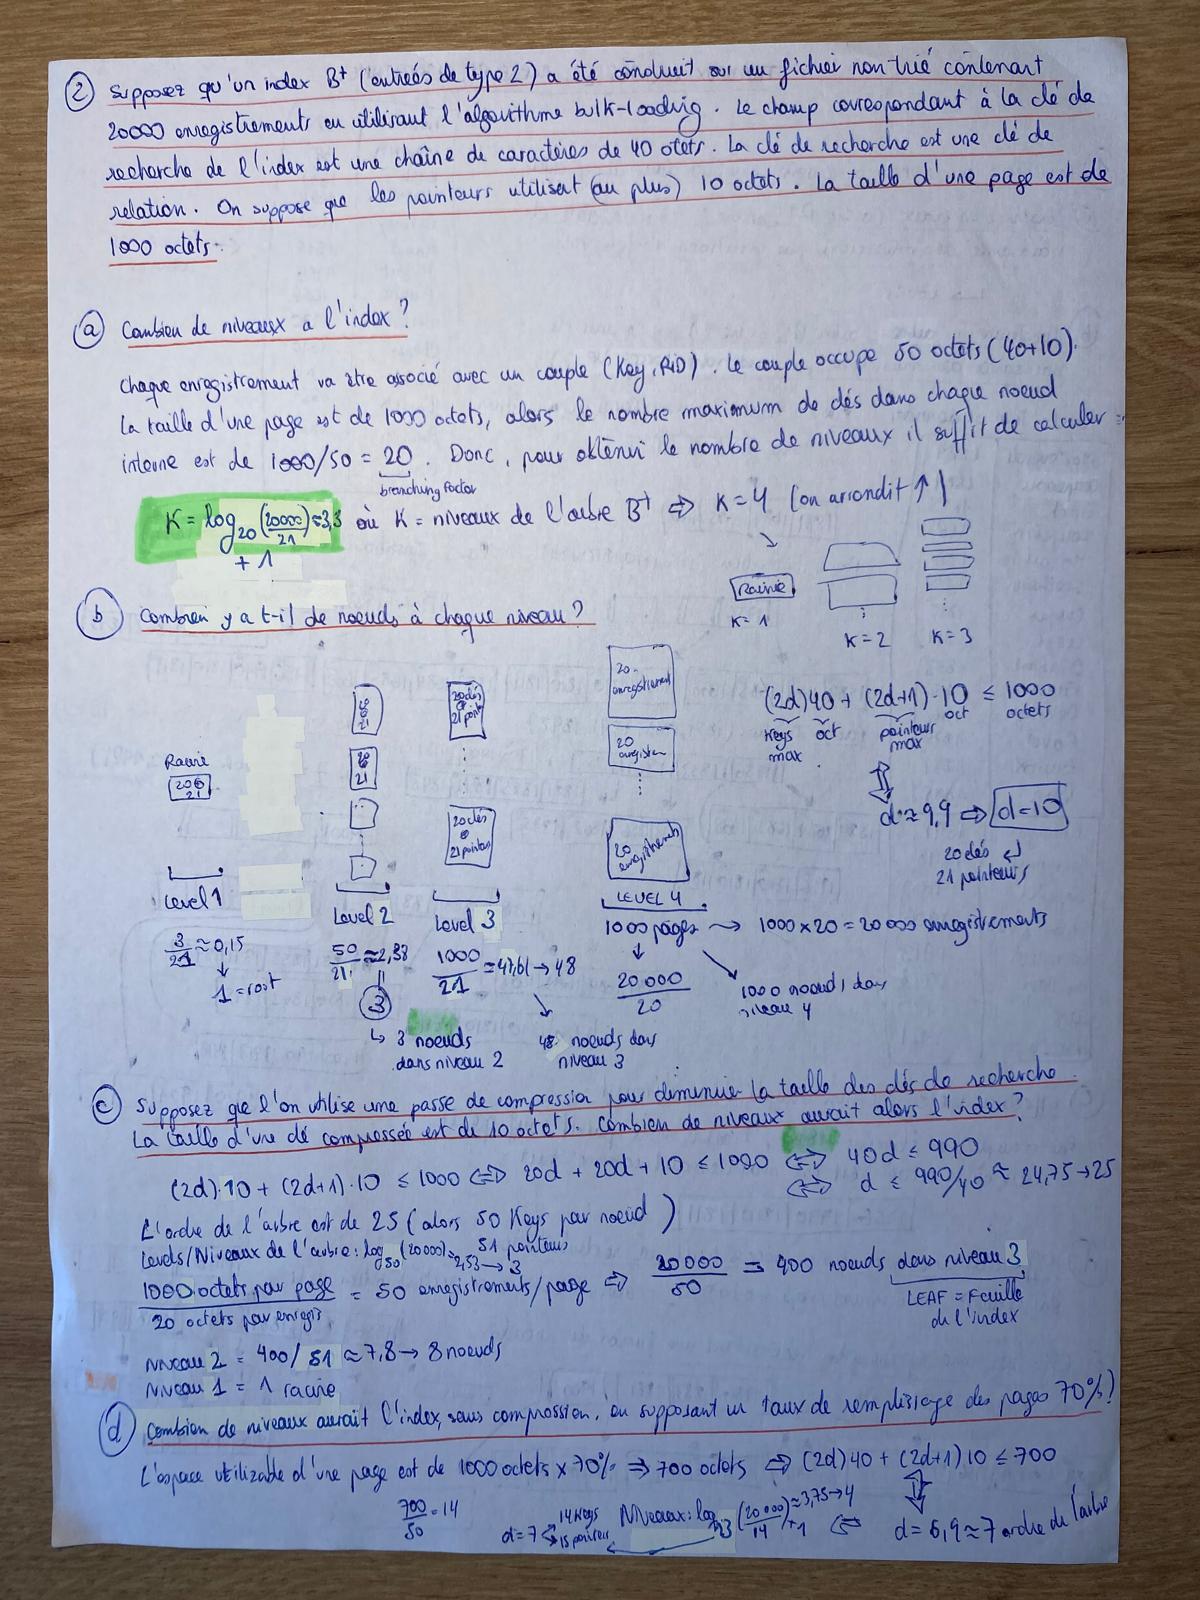 ② Supposez qu'un index B+ (entrées de type 2) a été construit sur un fichier non trié contenant
20000 enregistrements en utilisant l'algorithme bulk-loading. Le champ correspondant à la clé de
recherche de l'index est une chaîne de caractères de 40 otets. La clé de recherche est une clé de
relation. On suppose que les pointeurs utilisent (au plus) 10 octets. La taille d'une page est de
1000 octets.
ⓐ Combien de niveaux a l'index?
Chaque enregistrement va être associé avec un couple (Key, RID). Le couple occupe 50 octets (40+10).
La taille d'une page est de 1000 octets, alors le nombre maximum de clés dans chaque noeud
interne est de 1000/50 = 20. Donc, pour obtenir le nombre de niveaux il suffit de calculer =
branching factor
K = log20 (20000/21) ≈ 3,3 où K = niveaux de l'arbre B+ ⇒ K = 4 (on arrondit ↑)
+ 1
Racine
K = 1
K = 2
K = 3
ⓑ Combien y a t-il de noeuds à chaque niveau?
20
enregistrement
20 clés
21 point
(2d)40 + (2d+1)·10 ≤ 1000
Keys oct pointeurs oct octets
max max
Racine
20
21
20
21
20
enregistrem
d ≈ 9,9 ⇒ d=10
20 clés
21 pointeurs
20 clés
21 pointeurs
20
enregistrements
Level 1
Level 2
Level 3
LEVEL 4
1000 pages → 1000 x 20 = 20 000 enregistrements
3/21 ≈ 0,15
50/21 ≈ 2,38
1000/21 = 47,61 → 48
20 000/20
1000 noeuds dans
niveau 4
1 = root
3
↳ 3 noeuds
dans niveau 2
48 noeuds dans
niveau 3
ⓒ Supposez que l'on utilise une passe de compression pour diminuer la taille des clés de recherche.
La taille d'une clé compressée est de 10 octets. Combien de niveaux aurait alors l'index?
(2d)·10 + (2d+1)·10 ≤ 1000 ⇔ 20d + 20d + 10 ≤ 1000 ⇔ 40d ≤ 990
⇔ d ≤ 990/40 ≈ 24,75 → 25
L'ordre de l'arbre est de 25 (alors 50 Keys par noeud)
51 pointeurs
Levels/Niveaux de l'arbre: log50 (20000) ≈ 2,53 → 3
1000 octets par page/20 octets par enregis. = 50 enregistrements/page ⇒ 20000/50 = 400 noeuds dans niveau 3
LEAF = Feuille
de l'index
Niveau 2 = 400/51 ≈ 7,8 → 8 noeuds
Niveau 1 = 1 racine
ⓓ Combien de niveaux aurait l'index, sans compression, en supposant un taux de remplissage des pages 70%?
L'espace utilizable d'une page est de 1000 octets x 70% ⇒ 700 octets ⇒ (2d)40 + (2d+1)10 ≤ 700
d = 6,9 ≈ 7 ordre de l'arbre
700/50 = 14
d = 7
14 Keys
15 pointeurs
Niveaux: log13 (20000/14) + 1 ≈ 3,75 → 4